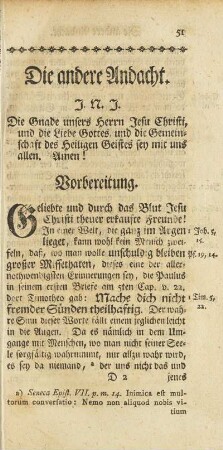 51
Die andere Andacht.
J. N. J.
Die Gnade unsers Herrn Jesu Christi,
und die Liebe Gottes und die Gemein-
schaft des Heiligen Geistes sey mit uns
allen. Amen!
Vorbereitung.
Geliebte und durch das Blut Jesu
Christi theuer erkaufte Freunde!
In einer Welt, die ganz im Argen 1 Joh. 5,
lieget, kann wohl kein Mensch zwei- 19.
feln, daß, wo man wolle unschuldig bleiben Ps. 19, 14.
großer Missethaten, dieses eine der aller-
nothwendigsten Erinnerungen sey, die Paulus
in seinem ersten Briefe am 5ten Cap. v. 22,
dort Timotheo gab: Mache dich nicht 1 Tim. 5,
fremder Sünden theilhaftig. Der wah- 22.
re Sinn dieser Worte fällt einem jeglichen leicht
in die Augen. Da es nämlich in dem Um-
gange mit Menschen, wo man nicht seiner See-
le sorgfältig wahrnimmt, nur allzu wahr wird,
es sey da niemand, a der uns nicht das und
D 2 jenes
a) Seneca Epist. VII. p. m. 14. Inimica est mul-
torum conversatio: Nemo non aliquod nobis vi-
tium